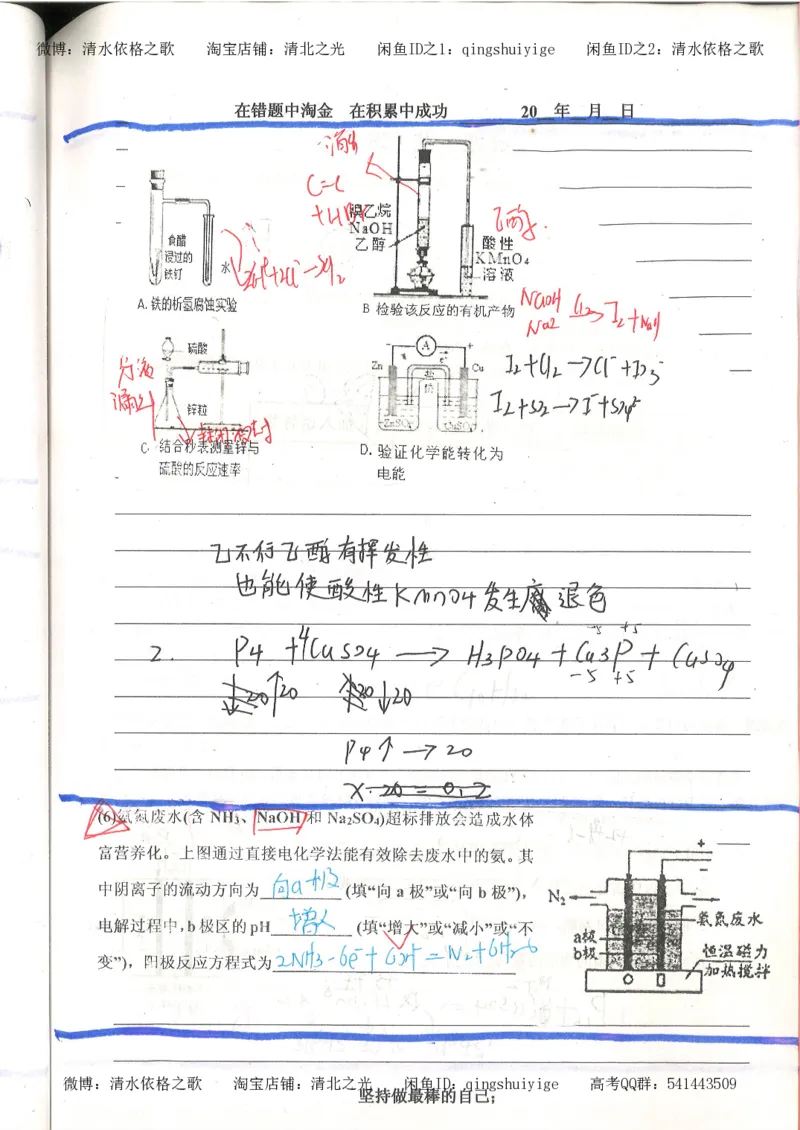 微博：清水依格之歌 淘宝店铺：清北之光 闲鱼ID之1：qingshuiyige 闲鱼ID之2：清水依格之歌
在错题中淘金 在积累中成功 20 年 月 日
C=C
溴乙烷
NaOH
乙醇
乙醇
酸性
KMnO₄
溶液
食醋
浸过的
铁钉
水
A.铁的析氢腐蚀实验
B 检验该反应的有机产物
NaOH
硫酸
锌粒
分液
漏斗
A
Zn
Cu
盐
桥
ZnSO₄
CuSO₄
I₂+Cl₂→Cl⁻+IO₃⁻
C. 结合秒表测量锌与
硫酸的反应速率
D. 验证化学能转化为
电能
乙不行乙醇有挥发性
也能使酸性KMnO4发生 退色
2. P4 +4CuSO4 → H3PO4 + Cu3P + CuSO4
-5 +5
↑20 ↓20
P4↑ → 20
X-20=0.2
(6)氨氮废水(含 NH₃、NaOH 和 Na₂SO₄)超标排放会造成水体
富营养化。上图通过直接电化学法能有效除去废水中的氨。其
中阴离子的流动方向为 向a极 (填“向 a 极”或“向 b 极”),
电解过程中，b 极区的 pH 增大 (填“增大”或“减小”或“不
变”)，阳极反应方程式为 2NH₃-6e⁻+6OH⁻=N₂+6H₂O
+
−
N₂
氨氮废水
a极
b极
恒温磁力
加热搅拌
微博：清水依格之歌 淘宝店铺：清北之光 闲鱼ID：qingshuiyige 高考QQ群：541443509
坚持做最棒的自己；